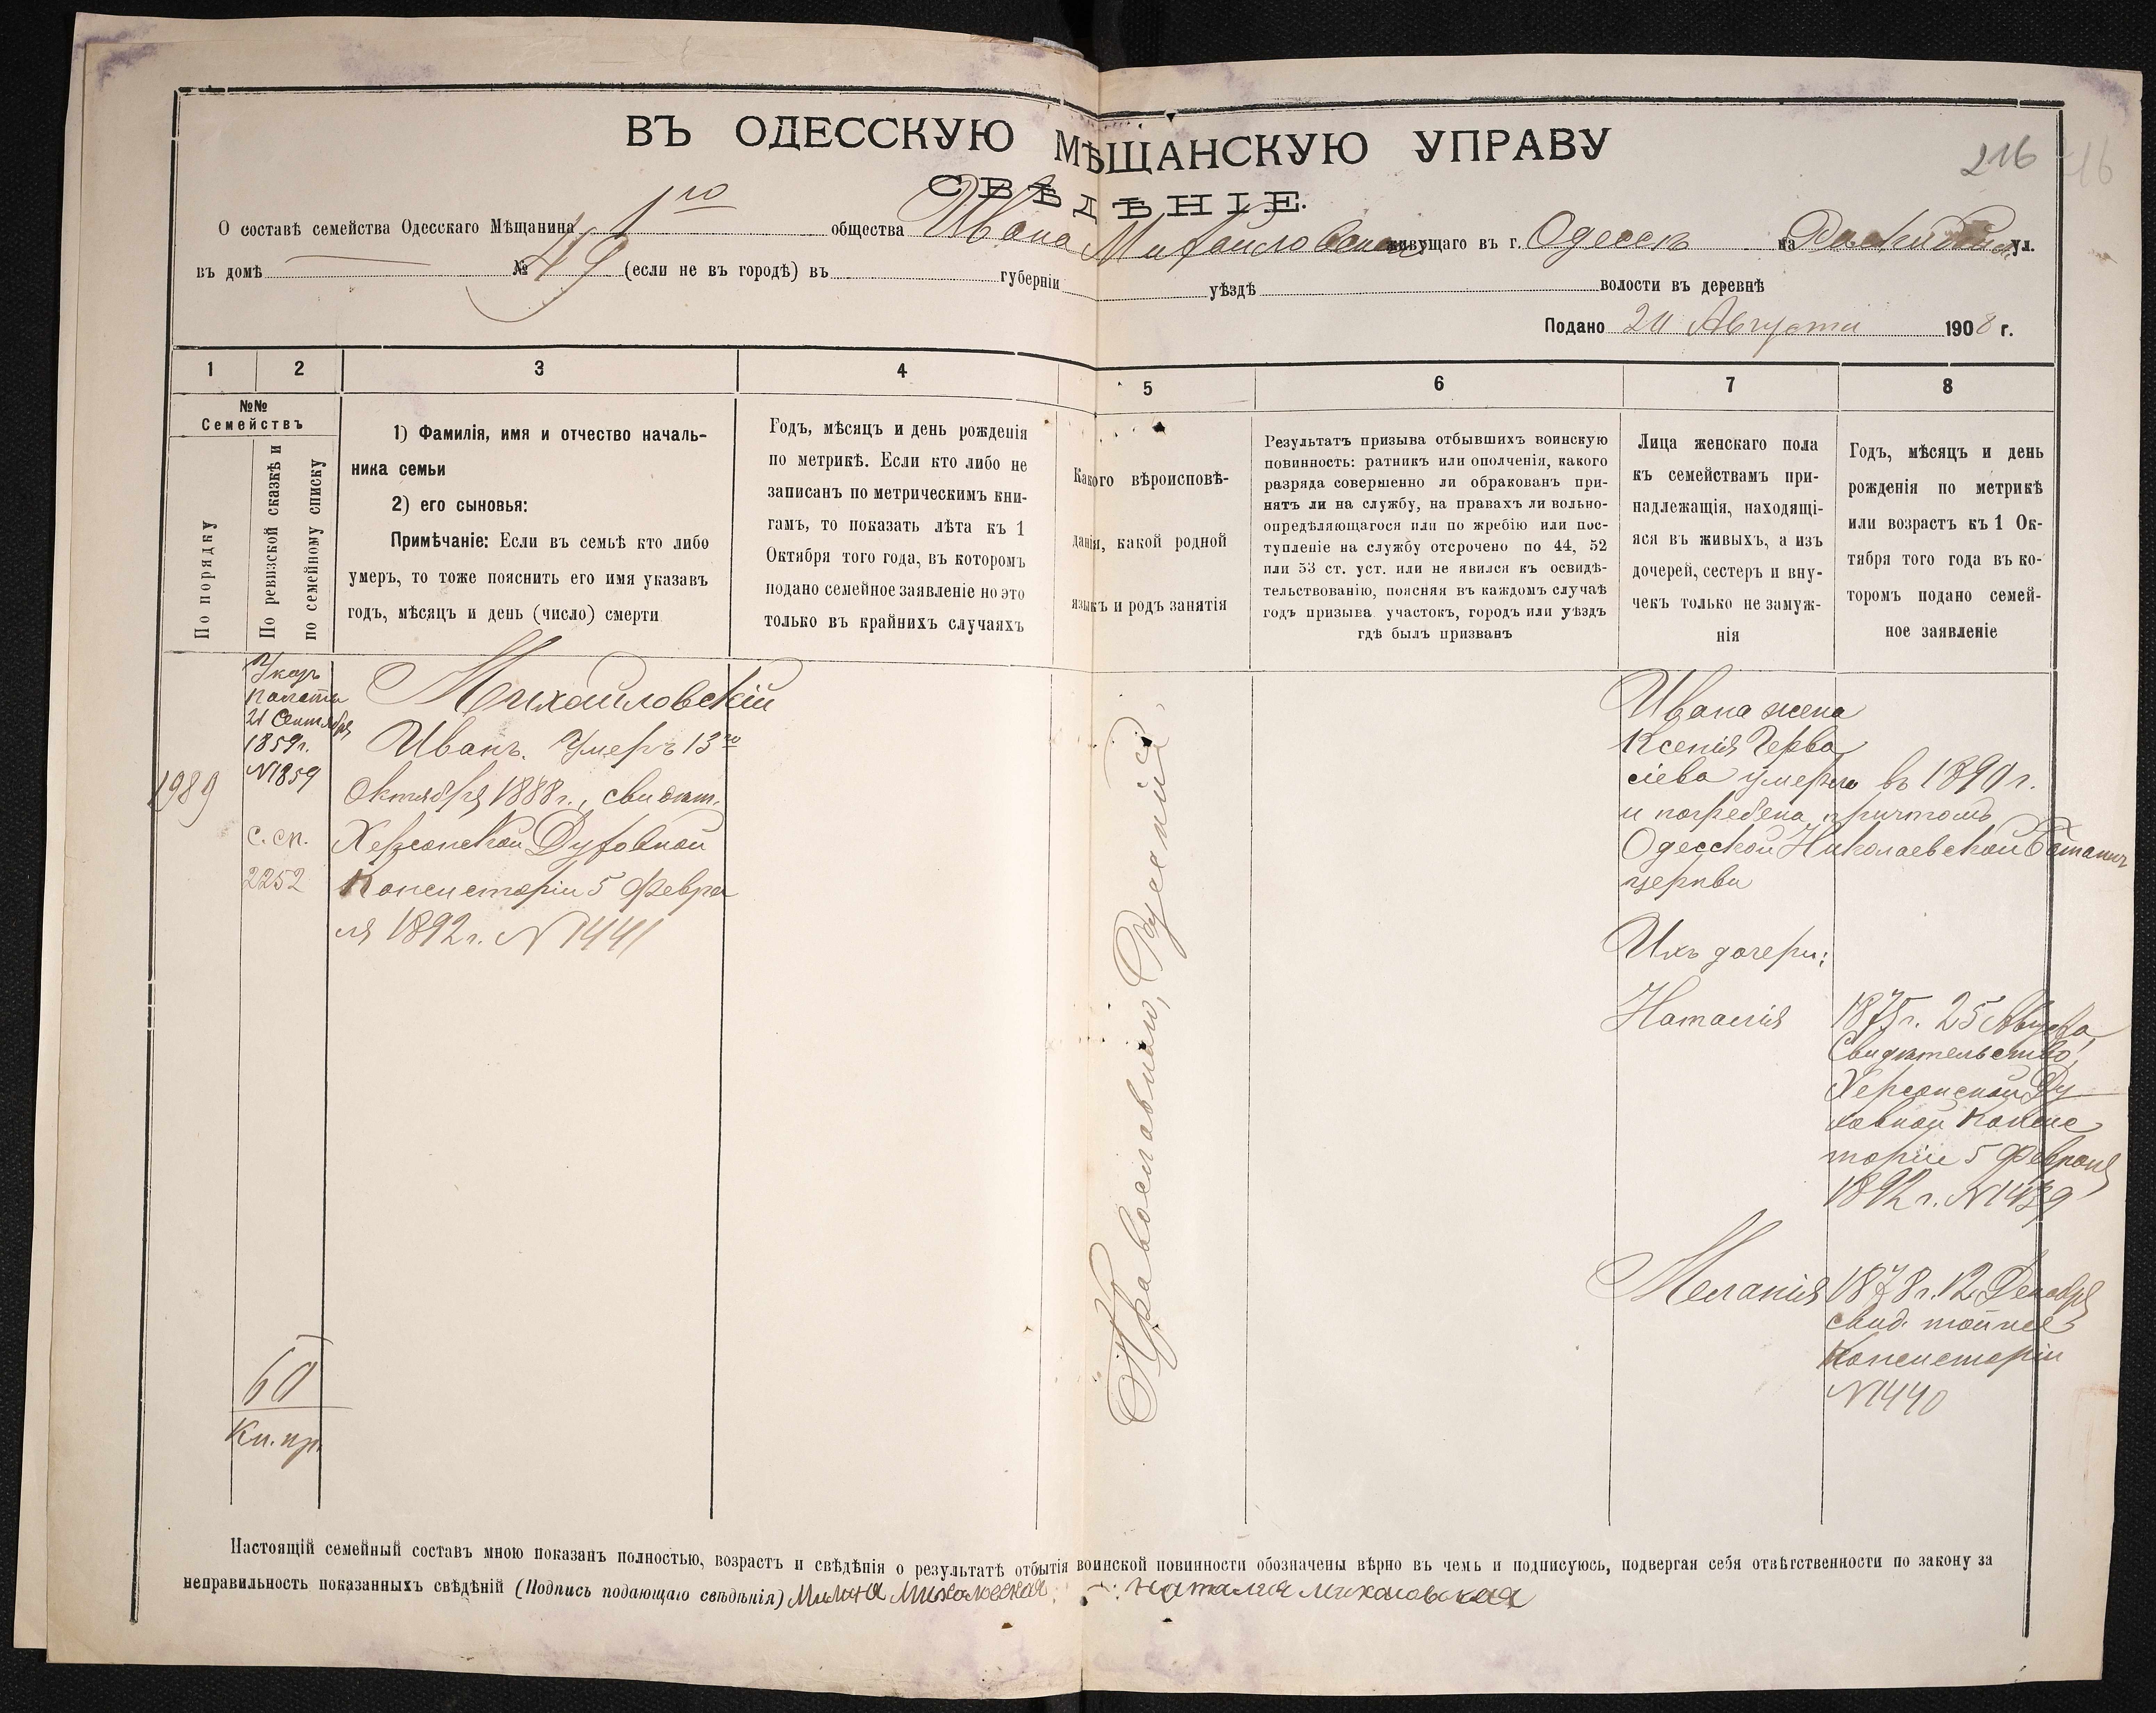 216
ВЪ ОДЕССКУЮ МѢЩАНСКУЮ УПРАВУ
СВѢДѢНІЕ.
О составѣ семейства Одесскаго Мѣщанина 1го общества Ивана Михайловскаго живущаго въ г. Одессѣ на ул.
въ домѣ № 49 (если не въ городѣ) въ губерніи уѣздѣ волости въ деревнѣ
Подано 20 Августа 1908 г.
1 2 3 4 5 6 7 8
№№
Семействъ
По порядку
По ревизской сказкѣ и
по семейному списку
1) Фамилія, имя и отчество началь-
ника семьи
2) его сыновья:
Примѣчаніе: Если въ семьѣ кто либо
умеръ, то тоже пояснить его имя указавъ
годъ, мѣсяцъ и день (число) смерти
Годъ, мѣсяцъ и день рожденія
по метрикѣ. Если кто либо не
записанъ по метрическимъ кни-
гамъ, то показать лѣта къ 1
Октября того года, въ которомъ
подано семейное заявленіе но это
только въ крайнихъ случаяхъ
Какого вѣроисповѣ-
данія, какой родной
языкъ и родъ занятія
Результатъ призыва отбывшихъ воинскую
повинность: ратникъ или ополченія, какого
разряда совершенно ли обракованъ при-
нятъ ли на службу, на правахъ ли вольно-
опредѣляющагося или по жребію или пос-
тупленіе на службу отсрочено по 44, 52
или 53 ст. уст. или не явился къ освидѣ-
тельствованію, поясняя въ каждомъ случаѣ
годъ призыва участокъ, городъ или уѣздъ
гдѣ былъ призванъ
Лица женскаго пола
къ семействамъ при-
надлежащія, находящі-
яся въ живыхъ, а изъ
дочерей, сестеръ и вну-
чекъ только не замуж-
нія
Годъ, мѣсяцъ и день
рожденія по метрикѣ
или возрастъ къ 1 Ок-
тября того года въ ко-
торомъ подано семей-
ное заявленіе
1989
Указъ
палаты
21 Сентября
1859г.
№1859
с. сп.
2252
60
Кн. пр.
Михайловскій
Иванъ. Умеръ 13го
Октября 1888г., свидѣт.
Херсонской Духовной
Консисторіи 5 Февра
ля 1892г. №1441
Православнаго, Русскій.
Ивана жена
Ксенія Герва
сіева умерла въ 1890г.
и погребена причтомъ
Одесской Николаевской Ботанич
церкви
Ихъ дочери:
Наталія
1875г. 25 Августа,
Свидѣтельство
Херсонской Ду
ховной Консис
торіи 5 Февраля
1892г. №1439
Меланія
1878г. 12 Декабря
свид. той же
Консисторіи
№1440
Настоящій семейный составъ мною показанъ полностью, возрастъ и свѣдѣнія о результатѣ отбытія воинской повинности обозначены вѣрно въ чемъ и подписуюсь, подвергая себя отвѣтственности по закону за
неправильность показанныхъ свѣдѣній (Подпись подающаго свѣдѣнія) Милиня Михаловская Наталия Михаловская